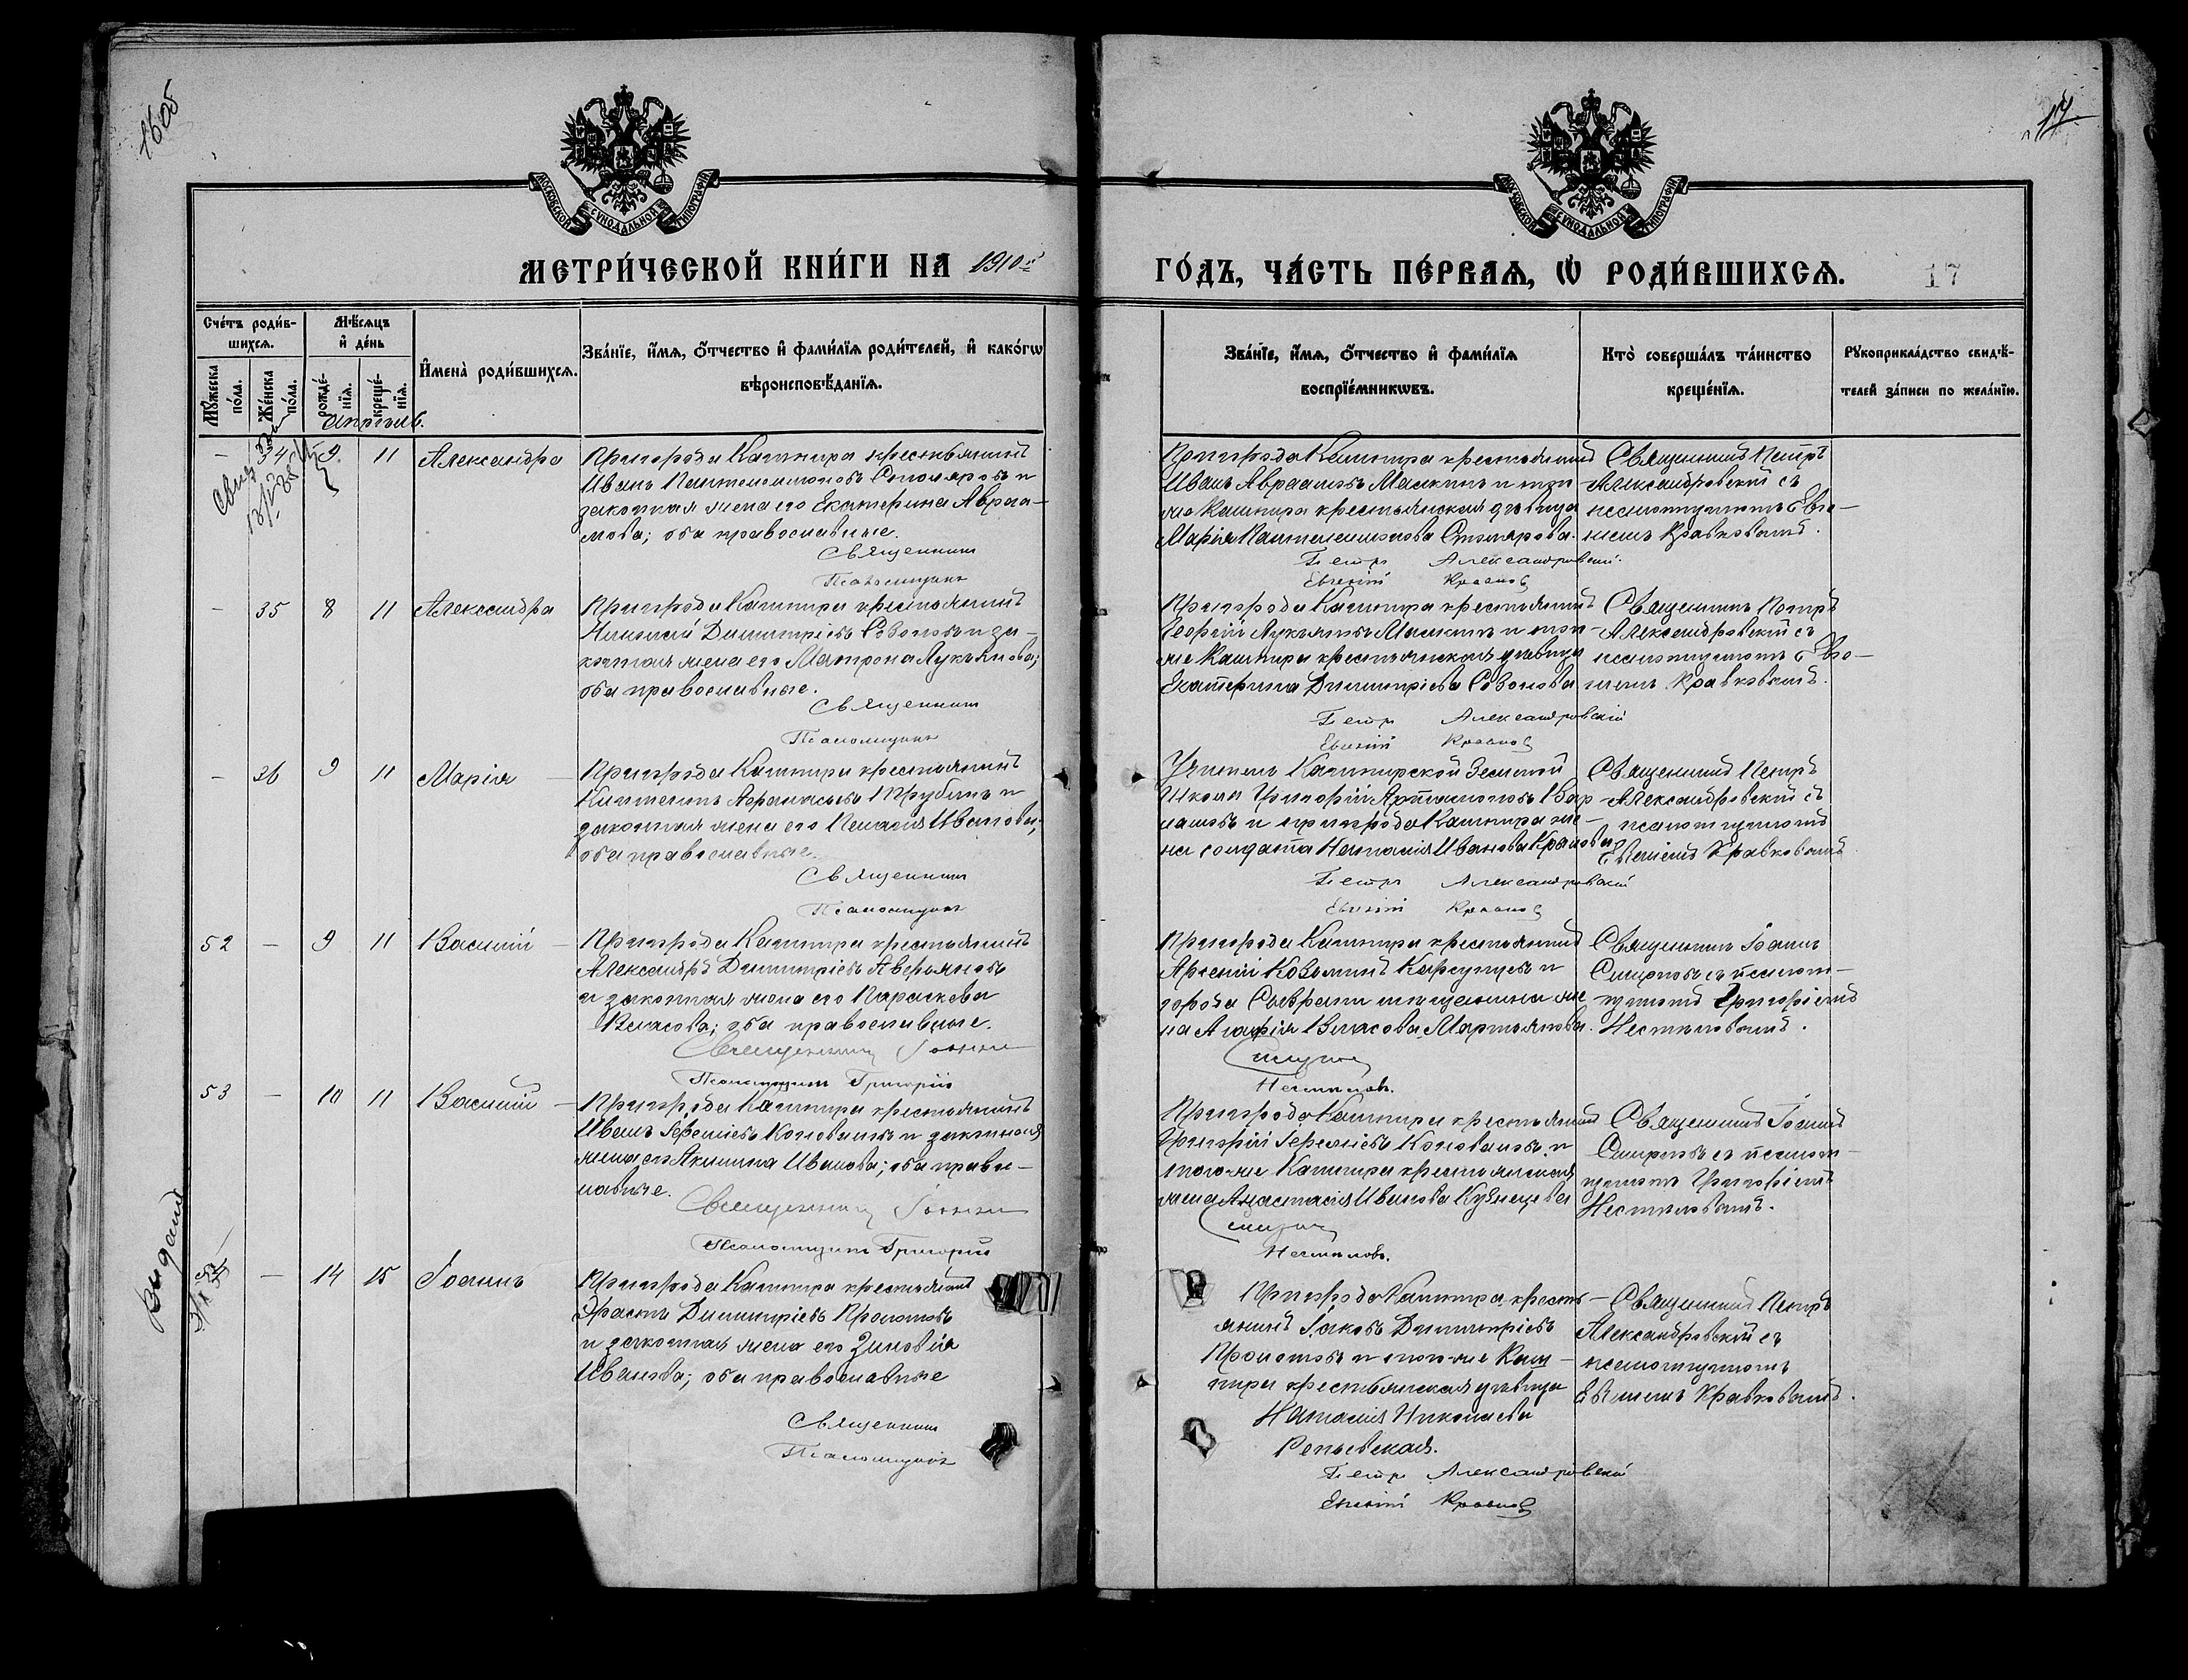 1605
17
МОСКОВСКОЙ СѴНОДАЛЬНОЙ ТИПОГРАФІИ
МОСКОВСКОЙ СѴНОДАЛЬНОЙ ТИПОГРАФІИ
МЕТРИ́ЧЕСКОЙ КНИ́ГИ НА 1910й
ГО́ДЪ, ЧА́СТЬ ПЕ́РВАѦ, Ѡ РОДИ́ВШИХСѦ.
17
Сче́тъ роди́в-
шихсѧ.
Мѣ́сѧцъ
и҆ де́нь
Мꙋ́жеска
по́ла.
Же́нска
по́ла.
рожде́-
нїѧ.
креще́-
нїѧ.
И҆мена̀ роди́вшихсѧ.
Зва́нїе, и҆́мѧ, ѻ҆́тчество и҆ фами́лїѧ роди́телей, и҆ како́гѡ
вѣроисповѣ́данїѧ.
Зва́нїе, и҆́мѧ, ѻ҆́тчество и҆ фами́лїѧ
воспрїе́мникѡвъ.
Кто̀ соверша́лъ та́инство
креще́нїѧ.
Рꙋкоприкла́дство свидѣ́-
телей за́писи по жела́нїю.
Апрѣль.
- 34 9 11 Александра
Пригорода Кашпира крестьянинъ
Иванъ Пантелеимоновъ Столяровъ и
законная жена его Екатерина Авраа-
мова; оба православные.
Священникъ
Псаломщикъ
Пригорода Кашпира крестьянинъ
Иванъ Авраамовъ Малкинъ и того
же Кашпира крестьянская дѣвица
Марія Пантелеимонова Столярова.
Петръ Александровский.
Евгеній
Священникъ Петръ
Александровскій съ
псаломщикомъ Евге-
ніемъ Кравковымъ.
- 35 8 11 Александра
Пригорода Кашпира крестьянинъ
Николай Димитріевъ Созоновъ и за-
конная жена его Матрона Лукьянова;
оба православные.
Священникъ
Псаломщикъ
Пригорода Кашпира крестьянинъ
Георгій Лукьяновъ Малкинъ и того
же Кашпира крестьянская дѣвица
Екатерина Димитріева Созонова
Петръ Александровскій
Евгеній
Священникъ Петръ
Александровскій съ
псаломщикомъ Евге-
ніемъ Кравковымъ.
- 36 9 11 Марія
Пригорода Кашпира крестьянинъ
Афанасьевъ Трубинъ и
законная жена его Пелагія Иванова;
оба православные.
Священникъ
Псаломщикъ
Учитель Кашпирской Земской
Школы Григорій Артамоновъ Вар-
ламовъ и пригорода Кашпира же-
на солдата Наталія Иванова
Петръ Александровскій
Евгеній
Священникъ Петръ
Александровскій съ
псаломщикомъ
Евгеніемъ Кравковымъ
52 - 9 11 Василій
Пригорода Кашпира крестьянинъ
Александръ Димитріевъ Аверьяновъ
и законная жена его Параскева
Власова; оба православные.
Священникъ Іоаннъ
Псаломщикъ Григорій
Пригорода Кашпира крестьянинъ
Арсеній Козьминъ Карсунцевъ и
города Сызрани мѣщанина же-
на Агафія Власова Мартьянова.
Смирнов
Нестиловъ.
Священникъ Іоаннъ
Смирновъ съ псалом-
щикомъ Григоріемъ
Нестиловымъ.
53 - 10 11 Василій
Пригорода Кашпира крестьянинъ
Иванъ Іереміевъ Коноваловъ и законная
жена его Акилина Иванова; оба правос-
лавные.
Священникъ Іоаннъ
Псаломщикъ Григорій
Пригорода Кашпира крестьянинъ
Григорій Іереміевъ Коноваловъ и
того-же Кашпира крестьянская
жена Анастасія Иванова Кузнецова
Смирнов
Нестиловъ.
Священникъ Іоаннъ
Смирновъ съ псалом-
щикомъ Григоріемъ
Нестиловымъ.
Выдано
54 - 14 15 Іоаннъ
Пригорода Кашпира крестьянинъ
Эрастъ Димитріевъ Пролотовъ
и законная жена его Зиновія
Иванова; оба православные
Священникъ
Псаломщикъ
Пригорода Кашпира кресть-
янинъ Іаковъ Димитріевъ
Пролотовъ и того-же Каш-
пира крестьянская дѣвица
Наталія Николаева
Репьевская.
Петръ Александровскій
Евгеній
Священникъ Петръ
Александровскій съ
псаломщикомъ
Евгеніемъ Кравковымъ.